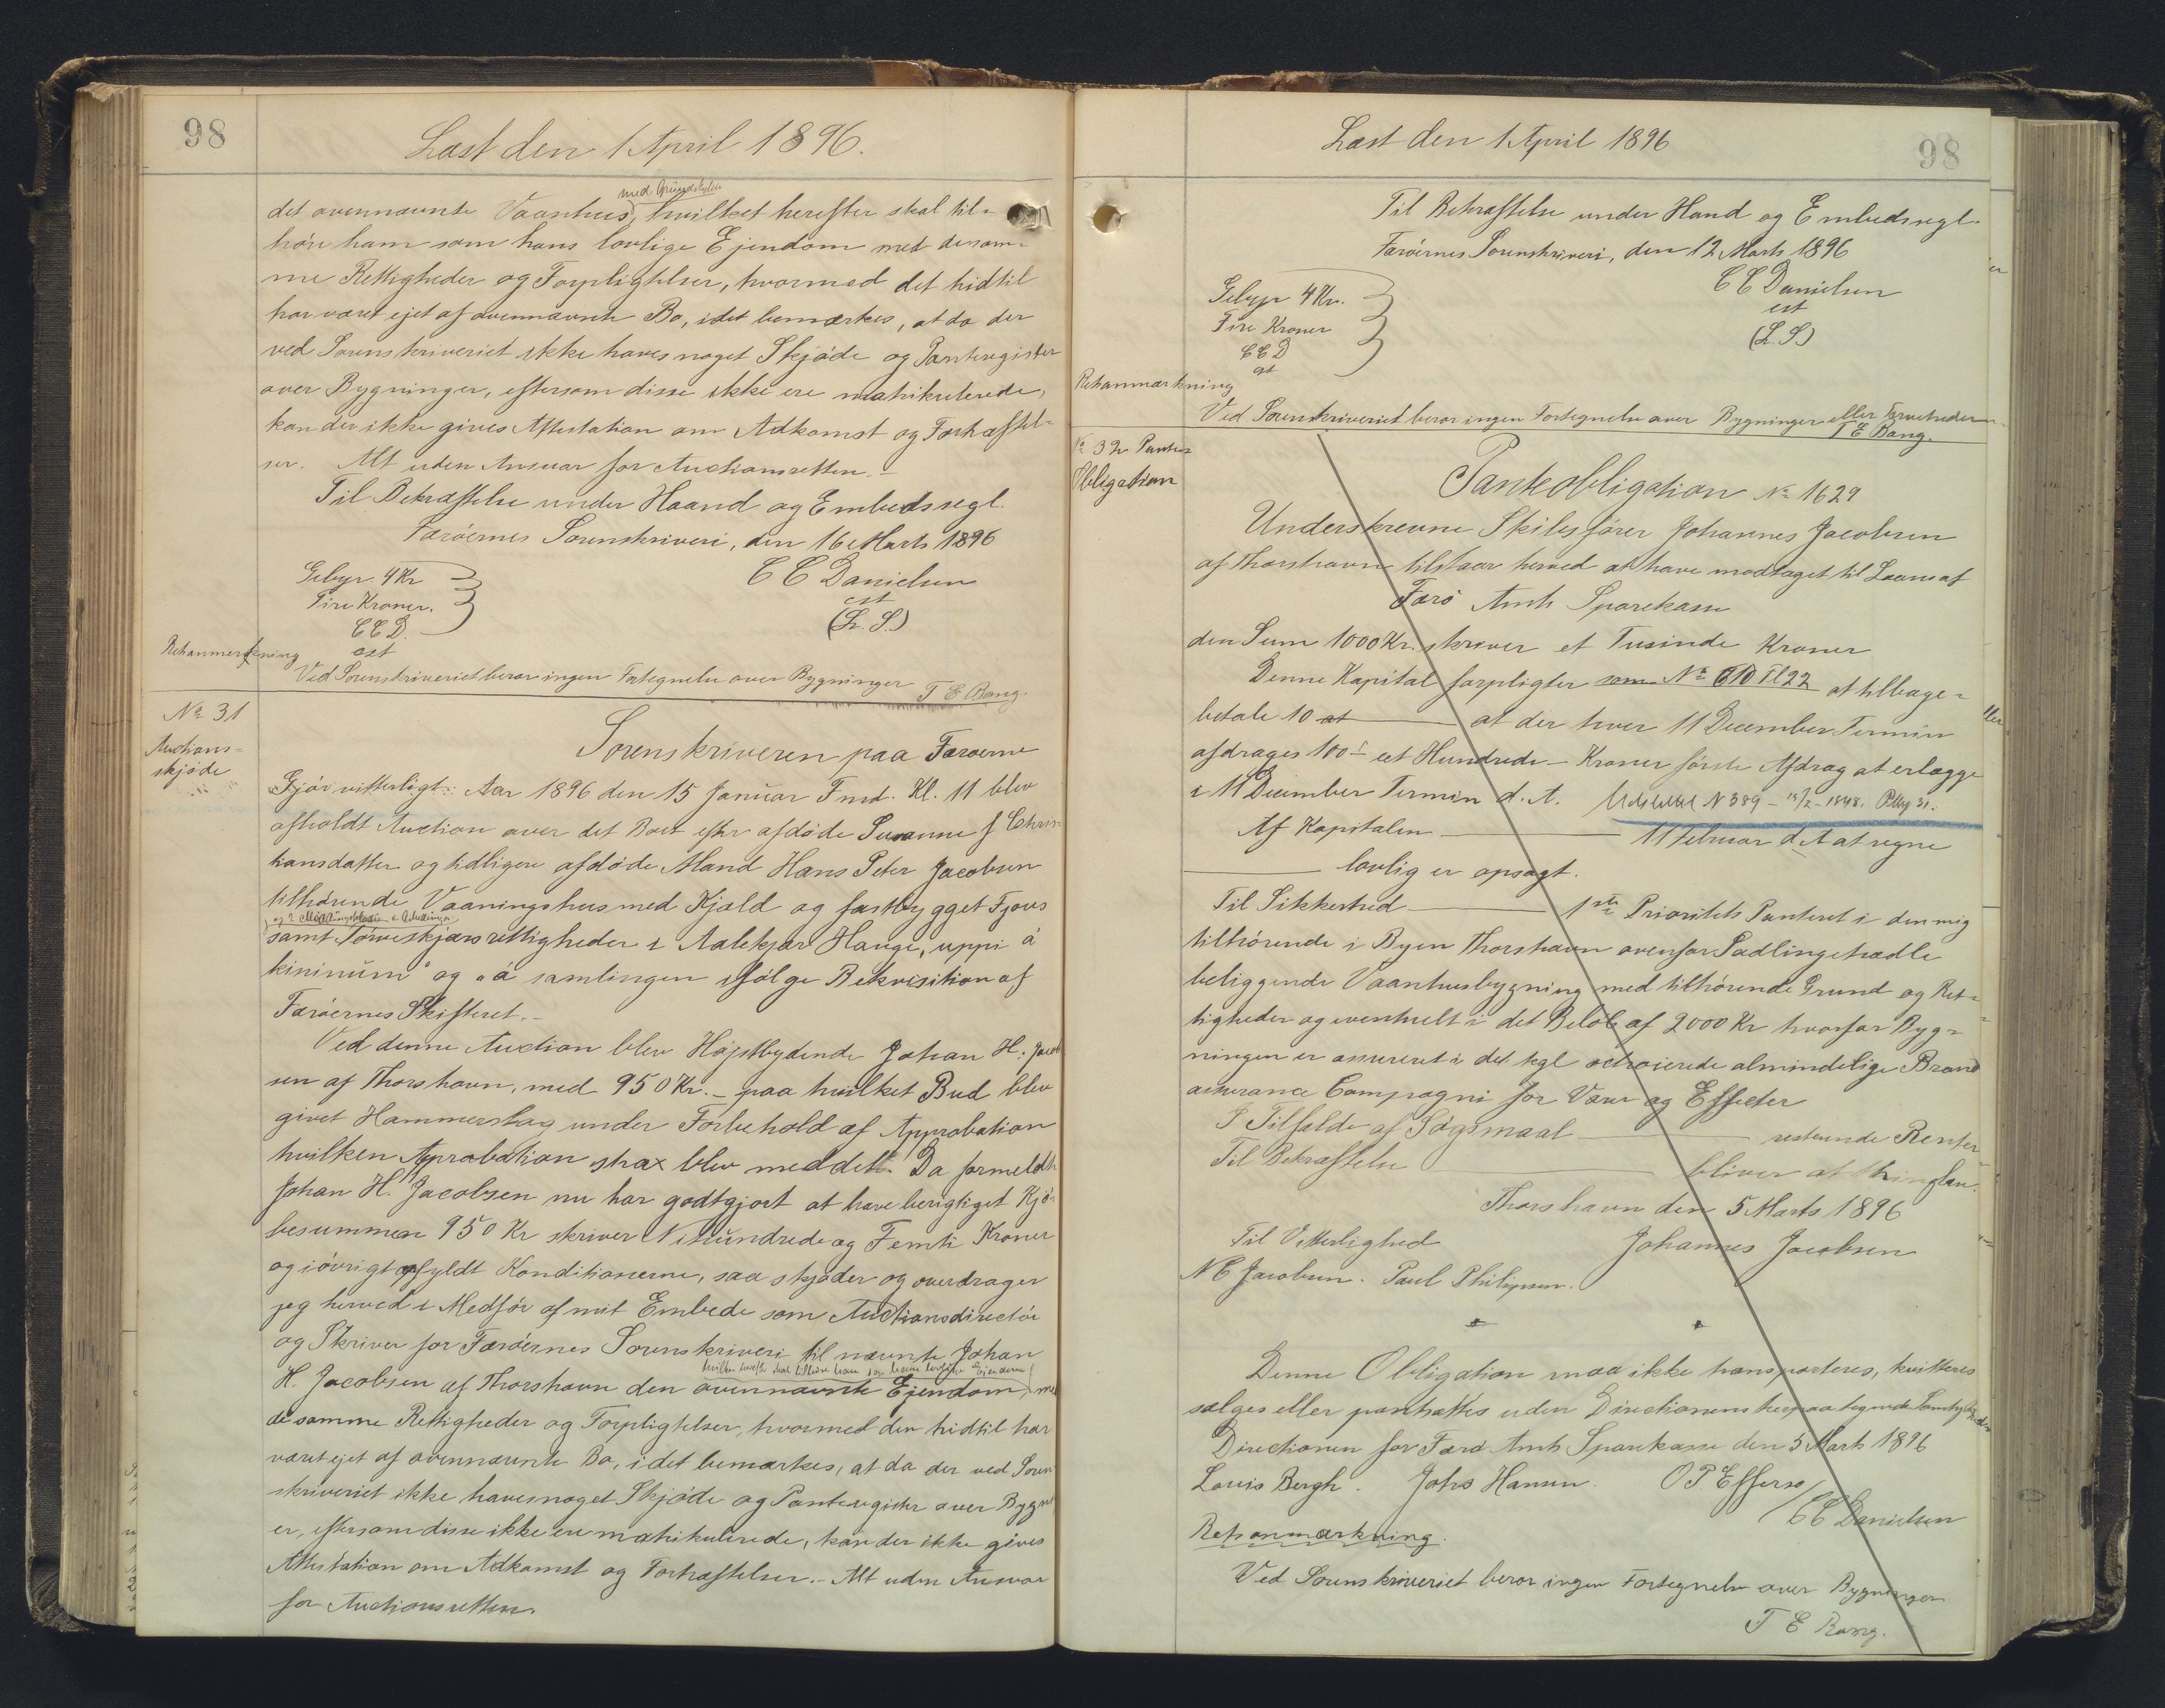 98
Læst den 1 April 1896.
med Grundstykke
det ovennævnte Vaanhus, hvilket herefter skal til-
høre ham som hans lovlige Ejendom med desam-
me Rettigheder og Forpligtelser, hvormed det hidtil
har været ejet af ovennævnte Bo, idet bemærkes, at da der
ved Sorenskriveriet ikke haves noget Skjøde og Panteregister
over Bygninger, eftersom disse ikke ere matrikulerede,
kan der ikke gives Attestation om Adkomst og Forhæftel-
ser. Alt uden Ansvar for Auctionsretten.-
Til Bekræftelse under Haand og Embedssegl.
Færøernes Sorenskriveri, den 16 Marts 1896
Gebyr. 4 Kr
Fire Kroner.
C C D.
cst
C C Danielsen
cst
(L. S.)
Retsanmerkning
Ved Sorenskriveriet beror ingen Fortegnelse over Bygninger T E Bang.
No 31
Auctions-
skjøde
Sorenskriveren paa Færøerne
Gjør vitterligt: Aar 1896 den 15 Januar Fmd. Kl. 11 blev
afholdt Auction over det Boet efter afdøde Susanne f Chris-
hansdatter og tidligere afdøde Mand Hans Peter Jacobsen
tilhørende Vaaningshus med Kjæld og fastbygget Fjøs
samt Tørveskjærsrettigheder i Aalekjær Hauge, "uppi á
kininum" og "á samlingen ifølge Rekvisition af
Færøernes Skifteret.-
Ved denne Auction blev Højstbydende Johan H. Jacob
sen af Thorshavn, med 950 Kr.- paa hvilket Bud blev
givet Hammerslag under Forbehold af Approbation
hvilken Approbation strax blev meddelt. Da formeldte
Johan H. Jacobsen nu har godtgjort at have berigtiget Kjø-
besummen 950 Kr skriver Nihundrede og Femti Kroner
og iøvrigt opfyldt Konditionerne, saa skjøder og overdrager
jeg herved i Medfør af mit Embede som Auctionsdirectør
og Skriver for Færøernes Sorenskriveri til nævnte Johan
hvilken herefter skal tilhøre ham som hans lovlige Ejendom
H. Jacobsen af Thorshavn den ovennævnte Ejendom, med
de samme Rettigheder og Forpligtelser, hvormed den hidtil har
været ejet af ovennævnte Bo, idet bemærkes, at da der ved Soren
skriveriet ikke haves noget Skjøde og Panteregister over Bygn
er, eftersom disse ikke ere matrikulerede, kan der ikke gives
Attestation om Adkomst og Forhæftelser.- Alt uden Ansvar
for Auctionsretten.
Læst den 1 April 1896
98
Til Bekræftelse under Haand og Embedssegl.
Færøernes Sorenskriveri, den 12 Marts 1896
Gebyr 4 Kr.
Fire Kroner
C C D
cst
C C Danielsen
cst
(L. S)
Retsanmærkning
Ved Sorenskriveriet beror ingen Fortegnelse over Bygninger eller
T E Bang.
No 32 Pante-
Obligation
Panteobligation No 1629
Underskrevne Skibsfører Johannes Jacobsen
af Thorshavn tilstaar herved at have modtaget til Laans af
Færø Amts Sparekasse
den Sum 1000 Kr. skriver et Tusinde Kroner
Denne Kapital forpligter som at tilbage-
betale 10 at at der hver 11 December Termin
afdrages 100- eet Hundrede- Kroner første Afdrag at erlægge
i 11 December Termin d. A. N 389 -
Af Kapitalen 11 Februar d. A at regne
lovlig er opsagt.
Til Sikkerhed 1ste Prioritets Panteret i den mig
tilhørende i Byen Thorshavn ovenfor Sadlingetrædle
beliggende Vaanhusbygning med tilhørende Grund og Ret-
tigheder og eventuelt i det Beløb af 2000 Kr hvorfor Byg-
ningen er assureret i det kgl octroierede almindelige Brand
assurance Compagni for Varer og Effecter
I Tilfælde af Søgsmaal resterende Renter
Til Bekræftelse bliver at thinglæs.
Thorshavn den 5 Marts 1896
Til Vitterlighed
Johannes Jacobsen
N C Jacobsen. Paul Philipsen.
Denne Obligation maa ikke transporteres, kvitteres
sælges eller pantsættes uden Directionens herpaa tegnede Samtykke
Directionen for Færø Amts Sparekasse den 5 Marts 1896
Louis Bergh. Johs Hansen. O P Effersø
C C Danielsen
Retsanmærkning.
Ved Sorenskriveriet beror ingen Fortegnelse over Bygninger
T E Bang.